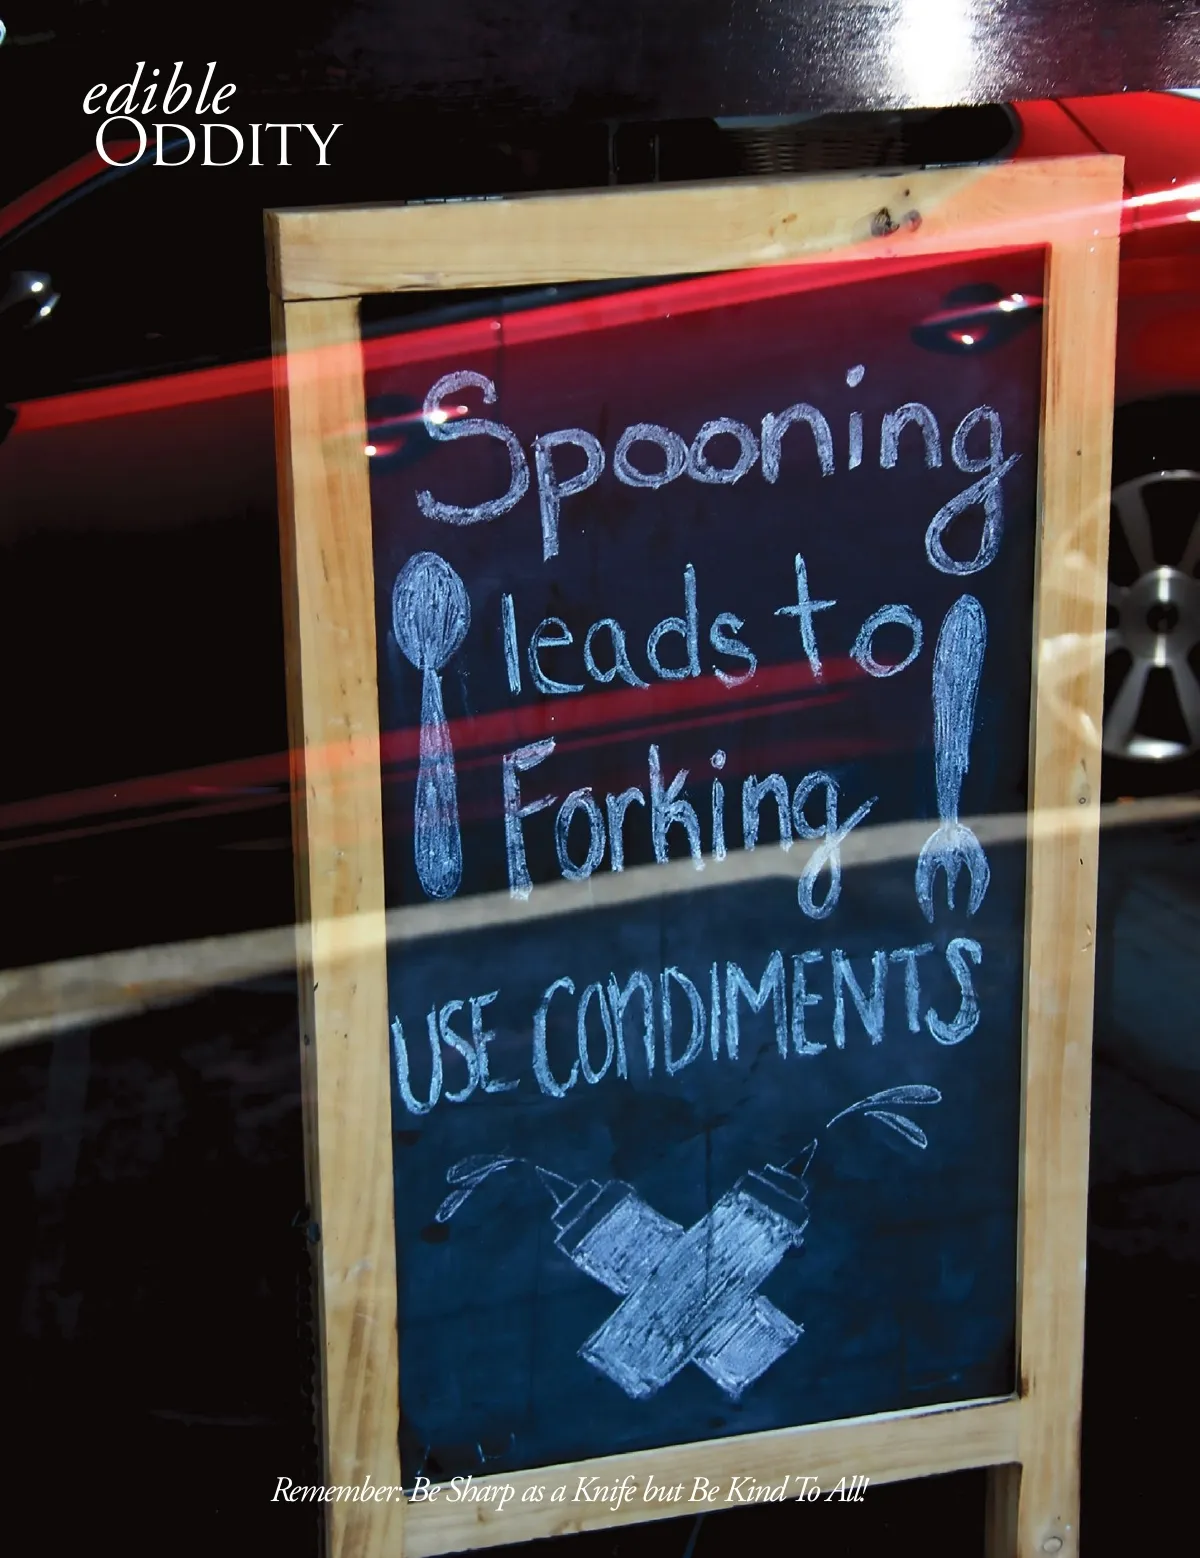 edible
ODDITY
Spooning
leads to
Forking
USE CONDIMENTS
Remember: Be Sharp as a Knife but Be Kind To All!